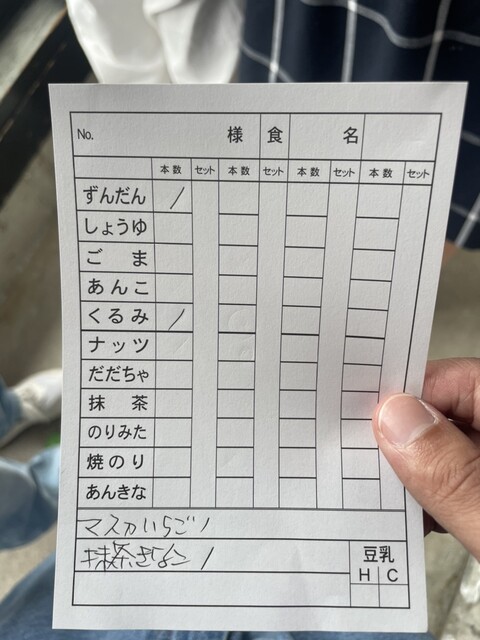 No. 様 食 名
本数 セット 本数 セット 本数 セット 本数 セット
ずんだん /
しょうゆ
ごま
あんこ
くるみ /
ナッツ
だだちゃ
抹茶
のりみた
焼のり
あんきな
マスカいちご /
抹茶きなこ / 豆乳
H C